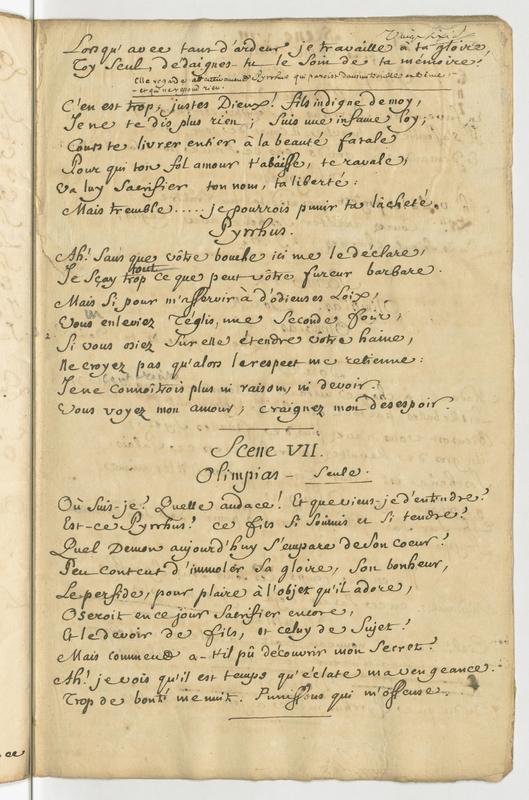 Lorsqu'avec tant d'ardeur je travaille à ta gloire,
Toy Seul, dédaignes tu le Soin de ta mémoire?
Elle regarde attentivement Pyrrhus qui paroist dans un trouble extreme
et qui ne repond rien.
C'en est trop, justes Dieux! fils indigne de moy,
Je ne te dis plus rien; Suis une infame loy;
Cours te livrer entier à la beauté fatale
Pour qui ton fol amour t'abaisse, te ravale;
va luy Sacrifier ton nom, ta liberté:
Mais tremble..... je pourrois punir ta lâcheté.
Pyrrhus.
Ah! Sans que vôtre bouche ici me le déclare,
Je Sçay trop tout ce que peut vôtre fureur barbare.
Mais Si pour m'asservir à d'odieuses Loix,
Vous enleviez Téglis, une Seconde fois;
Si vous osiez Sur elle étendre votre haine,
Ne croyez pas qu'alors le respect me retienne:
Je ne connoîtrois plus ni raison, ni devoir.
Vous voyez mon amour; craignez mon désespoir.
Scene VII.
Olimpias - Seule.
Où Suis-je? Quelle audace! Et que viens-je d'entendre?
Est-ce Pyrrhus? ce fils Si Soumis et Si tendre?
Quel Demon aujourd'huy S'empare de Son coeur?
Peu content d'immoler Sa gloire, Son bonheur,
Le perfide, pour plaire à l'objet qu'il adore,
Oseroit en ce jour Sacrifier encore,
Et le devoir de fils, et celuy de Sujet?
Mais comment a-t'il pû découvrir mon Secret?
Ah! je vois qu'il est temps qu'éclate ma vengeance.
Trop de bonté me nuit. Punissons qui m'offense.